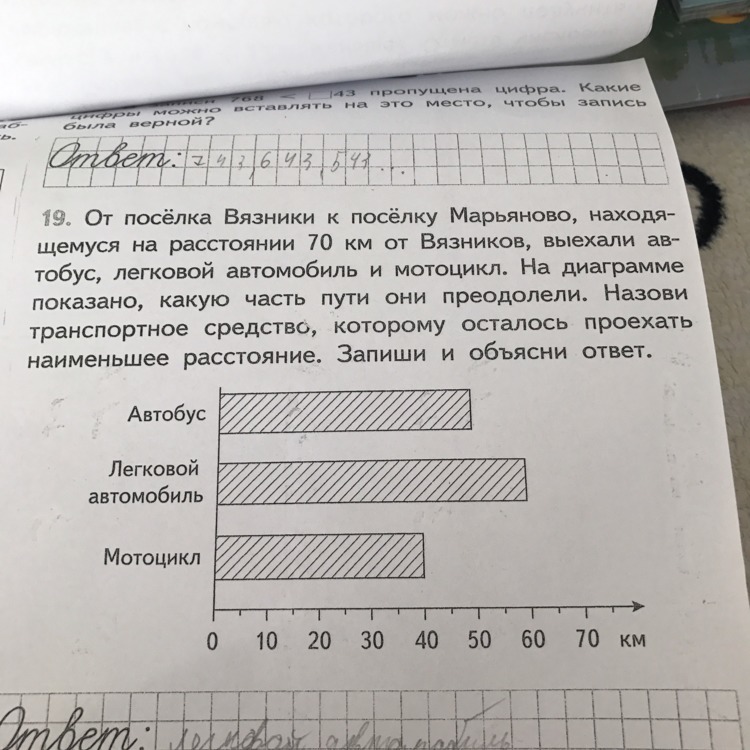 768 < 43 пропущена цифра. Какие
цифры можно вставлять на это место, чтобы запись
была верной?
Ответ: 743, 643, 543...
19. От посёлка Вязники к посёлку Марьяново, находя-
щемуся на расстоянии 70 км от Вязников, выехали ав-
тобус, легковой автомобиль и мотоцикл. На диаграмме
показано, какую часть пути они преодолели. Назови
транспортное средство, которому осталось проехать
наименьшее расстояние. Запиши и объясни ответ.
Автобус
Легковой
автомобиль
Мотоцикл
0 10 20 30 40 50 60 70 км
Ответ: легковой автомобиль